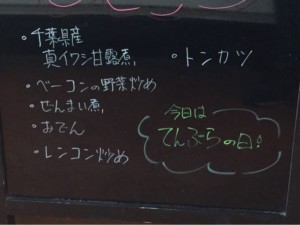 ・千葉県産
真イワシ甘露煮
・トンカツ
・ベーコンの野菜炒め
・ぜんまい煮
・おでん
・レンコン炒め
今日は
てんぷらの日!